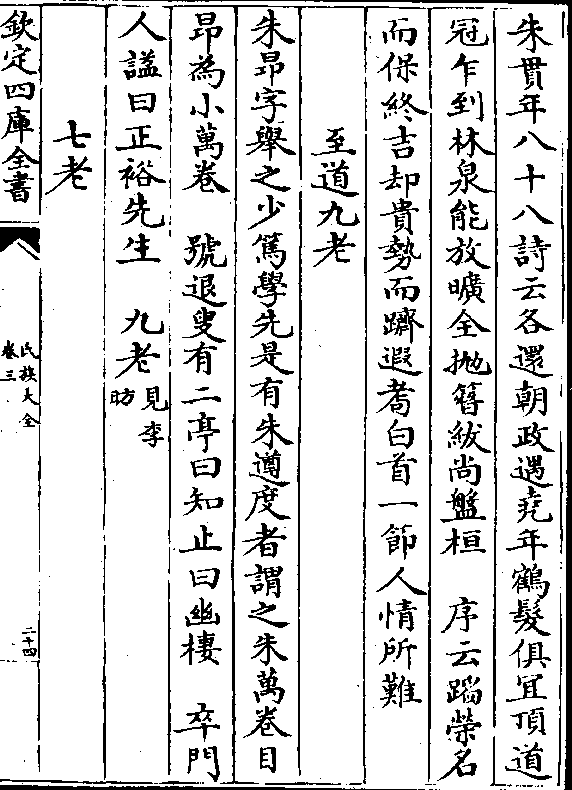 朱貫年八十八詩云各還朝政遇堯年鶴髮俱宜頂道
冠乍到林泉能放曠全抛簪紱尚盤桓　序云蹈榮名
而保終吉却貴勢而躋遐耆白首一節人情所難
至道九老
朱昂字舉之少篤學先是有朱遵度者謂之朱萬卷目
昂為小萬卷　號退叟有二亭曰知止曰幽棲　卒門
人諡曰正裕先生　九老見李昉
七老
欽定四庫全書
氏族大全
卷三
二十四